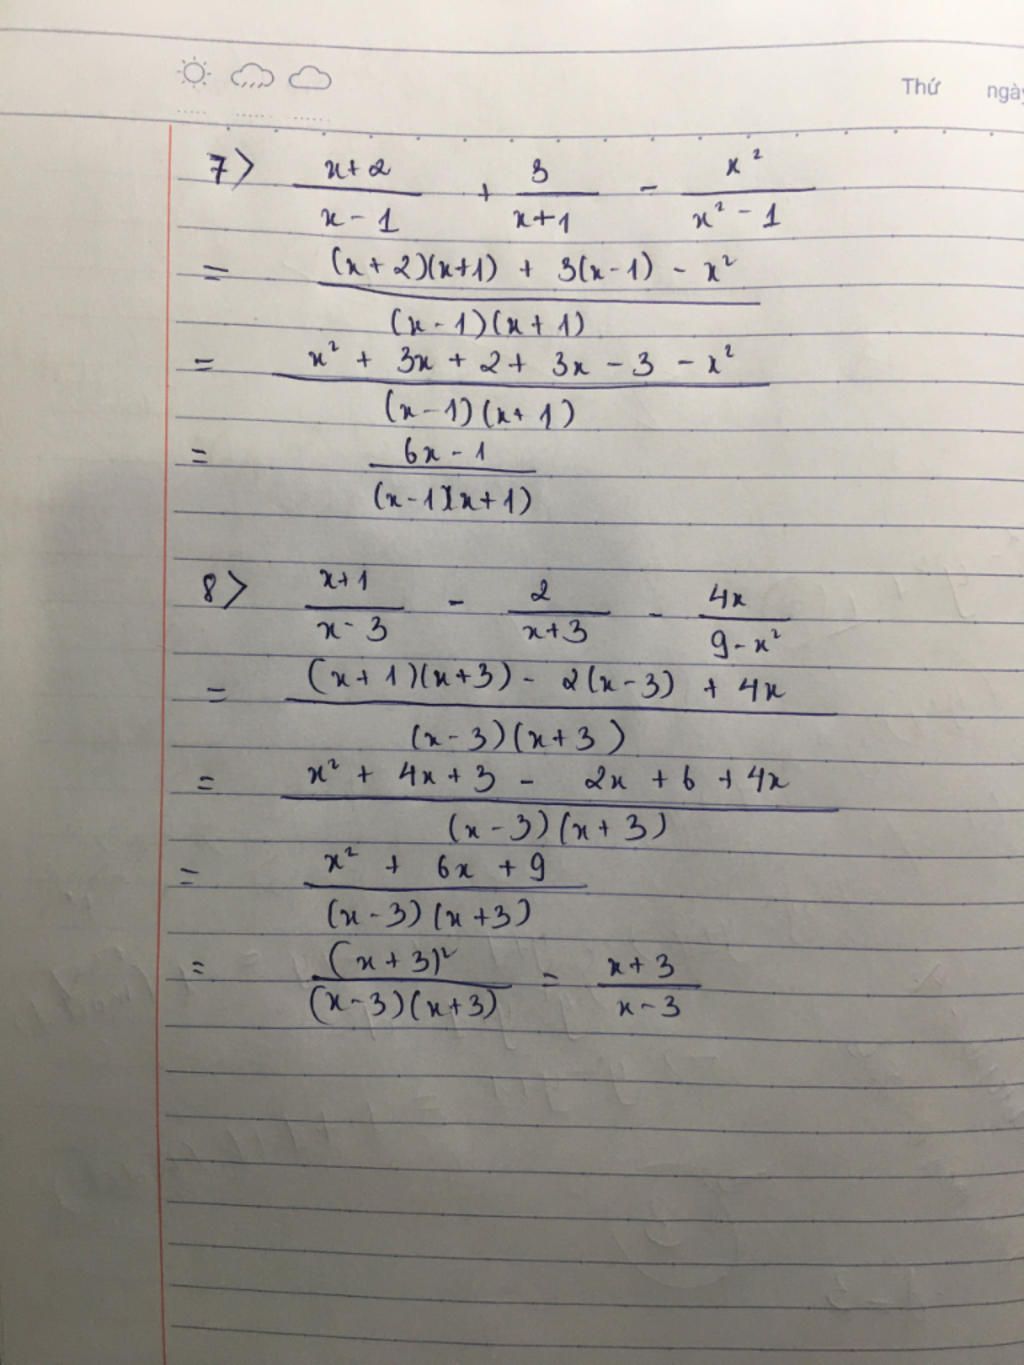 Thứ ngày
7> \frac{x+2}{x-1} + \frac{3}{x+1} - \frac{x^2}{x^2-1}
= \frac{(x+2)(x+1) + 3(x-1) - x^2}{(x-1)(x+1)}
= \frac{x^2 + 3x + 2 + 3x - 3 - x^2}{(x-1)(x+1)}
= \frac{6x-1}{(x-1)(x+1)}
8> \frac{x+1}{x-3} - \frac{2}{x+3} - \frac{4x}{9-x^2}
= \frac{(x+1)(x+3) - 2(x-3) + 4x}{(x-3)(x+3)}
= \frac{x^2 + 4x + 3 - 2x + 6 + 4x}{(x-3)(x+3)}
= \frac{x^2 + 6x + 9}{(x-3)(x+3)}
= \frac{(x+3)^2}{(x-3)(x+3)} = \frac{x+3}{x-3}